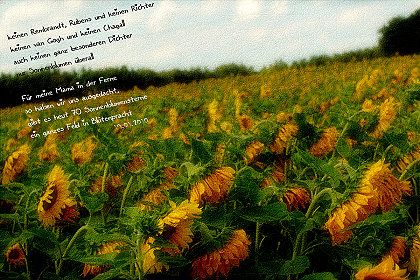 keinen Rembrandt, Rubens und keinen Richter
keinen van Gogh und keinen Chagall
auch keinen ganz besonderen Dichter
nur Sonnenblumen überall
Für meine Mama in der Ferne
so haben wir uns ausgedacht,
gibt es heut 70 Sonnenblumensterne
ein ganzes Feld in Blütenpracht
19.01.2010